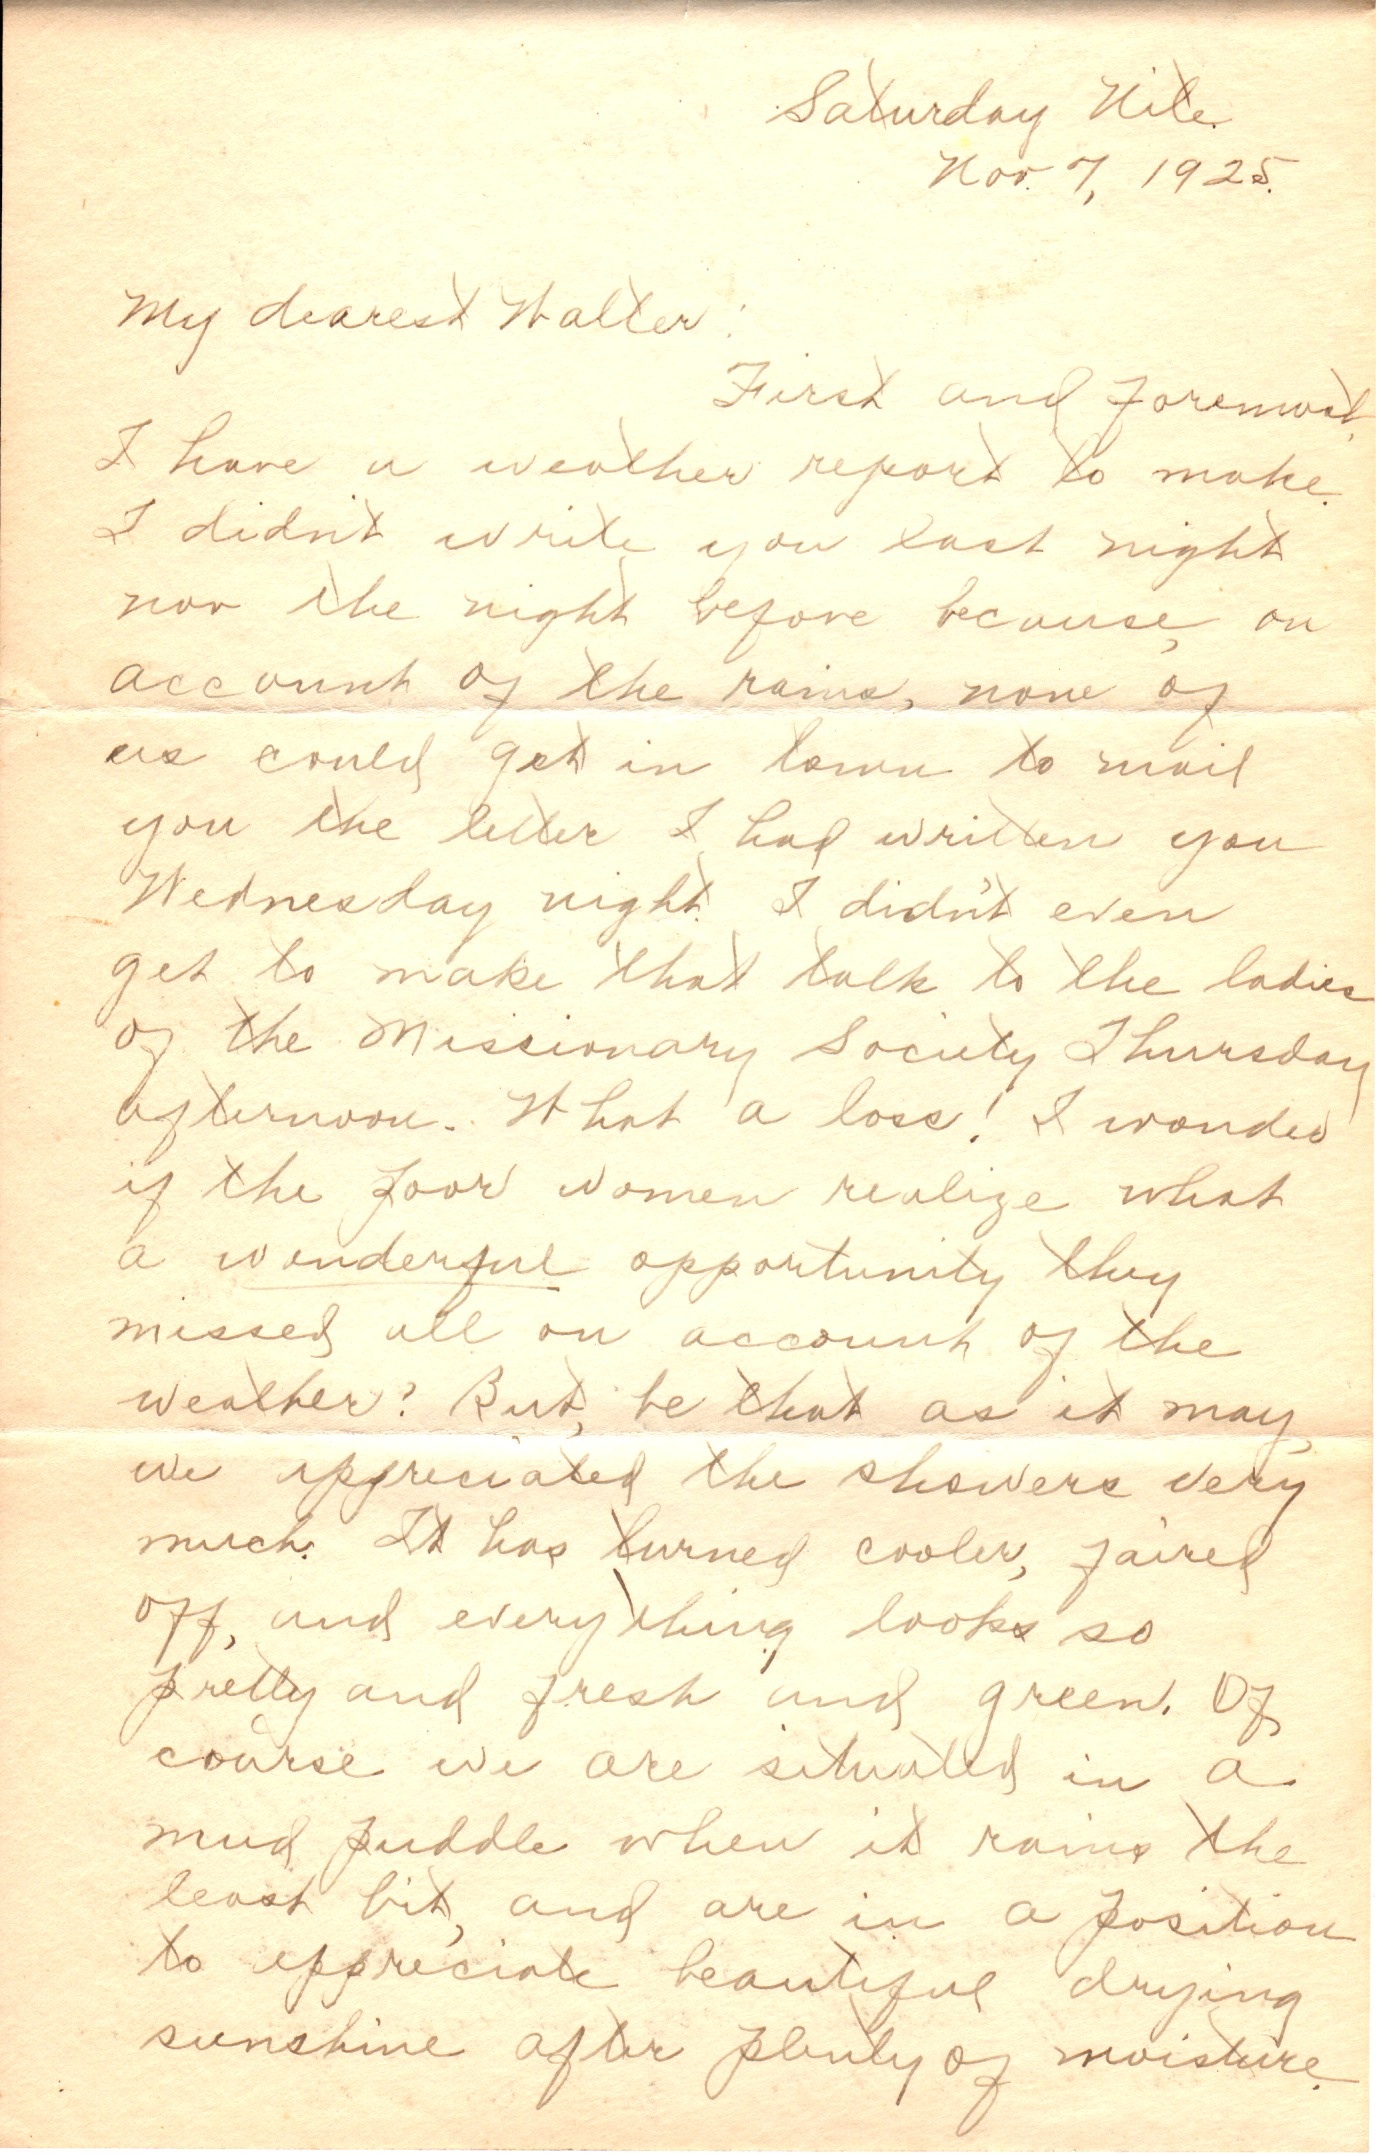 Saturday Nite.
Nov. 7, 1925.
My dearest Walter:
First and foremost,
I have a weather report to make.
I didn't write you last night
nor the night before because, on
account of the rains, none of
us could get in town to mail
you the letter I had written you
Wednesday night. I didn't even
get to make that talk to the ladies
of the Missionary Society Thursday
afternoon. What a loss! I wonder
if the poor women realize what
a wonderful opportunity they
missed all on account of the
weather? But, be that as it may,
we appreciated the showers very
much. It has turned cooler, faired
off, and everything looks so
pretty and fresh and green. Of
course we are situated in a
mud puddle when it rains the
least bit, and are in a position
to appreciate beautiful drying
sunshine after plenty of moisture.